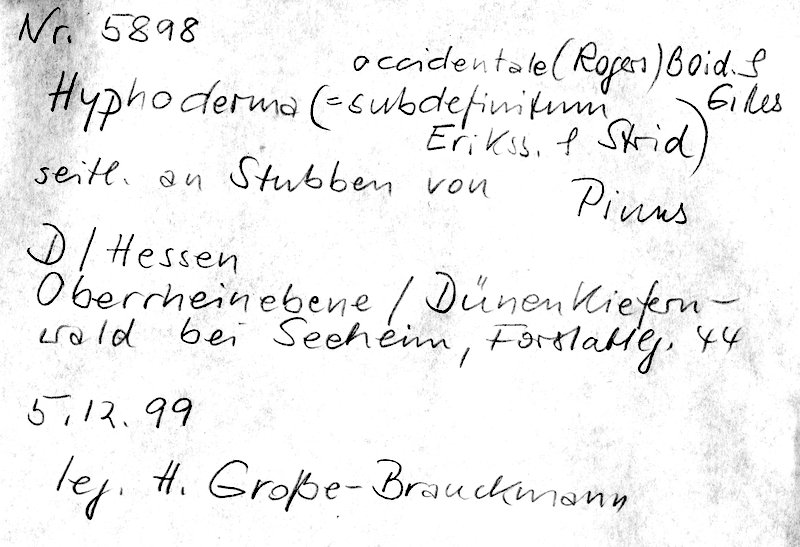 Nr. 5898
occidentale (Rogers) Boid. &
Gilles
Hyphoderma (= subdefinitum
Erikss. & Strid)
seitl. an Stubben von
Pinus
D / Hessen
Oberrheinebene / Dünenkiefern-
wald bei Seeheim, Forstabtlg. 44
5.12.99
leg. H. Große-Brauckmann